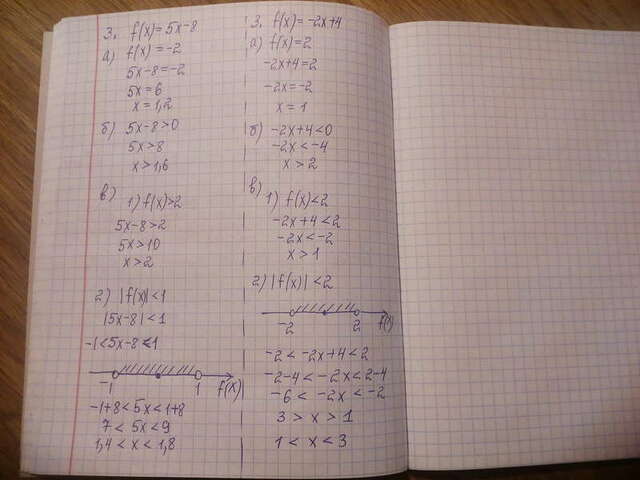 3. f(x)=5x-8
а) f(x)=-2
5x-8=-2
5x=6
x=1,2
б) 5x-8>0
5x>8
x>1,6
в)
1) f(x)>2
5x-8>2
5x>10
x>2
2) |f(x)|<1
|5x-8|<1
-1<5x-8<1
-1 1 f(x)
-1+8<5x<1+8
7<5x<9
1,4<x<1,8
3. f(x)=-2x+4
а) f(x)=2
-2x+4=2
-2x=-2
x=1
б) -2x+4<0
-2x<-4
x>2
в)
1) f(x)<2
-2x+4<2
-2x<-2
x>1
2) |f(x)|<2
-2 2 f(x)
-2<-2x+4<2
-2-4<-2x<2-4
-6<-2x<-2
3>x>1
1<x<3